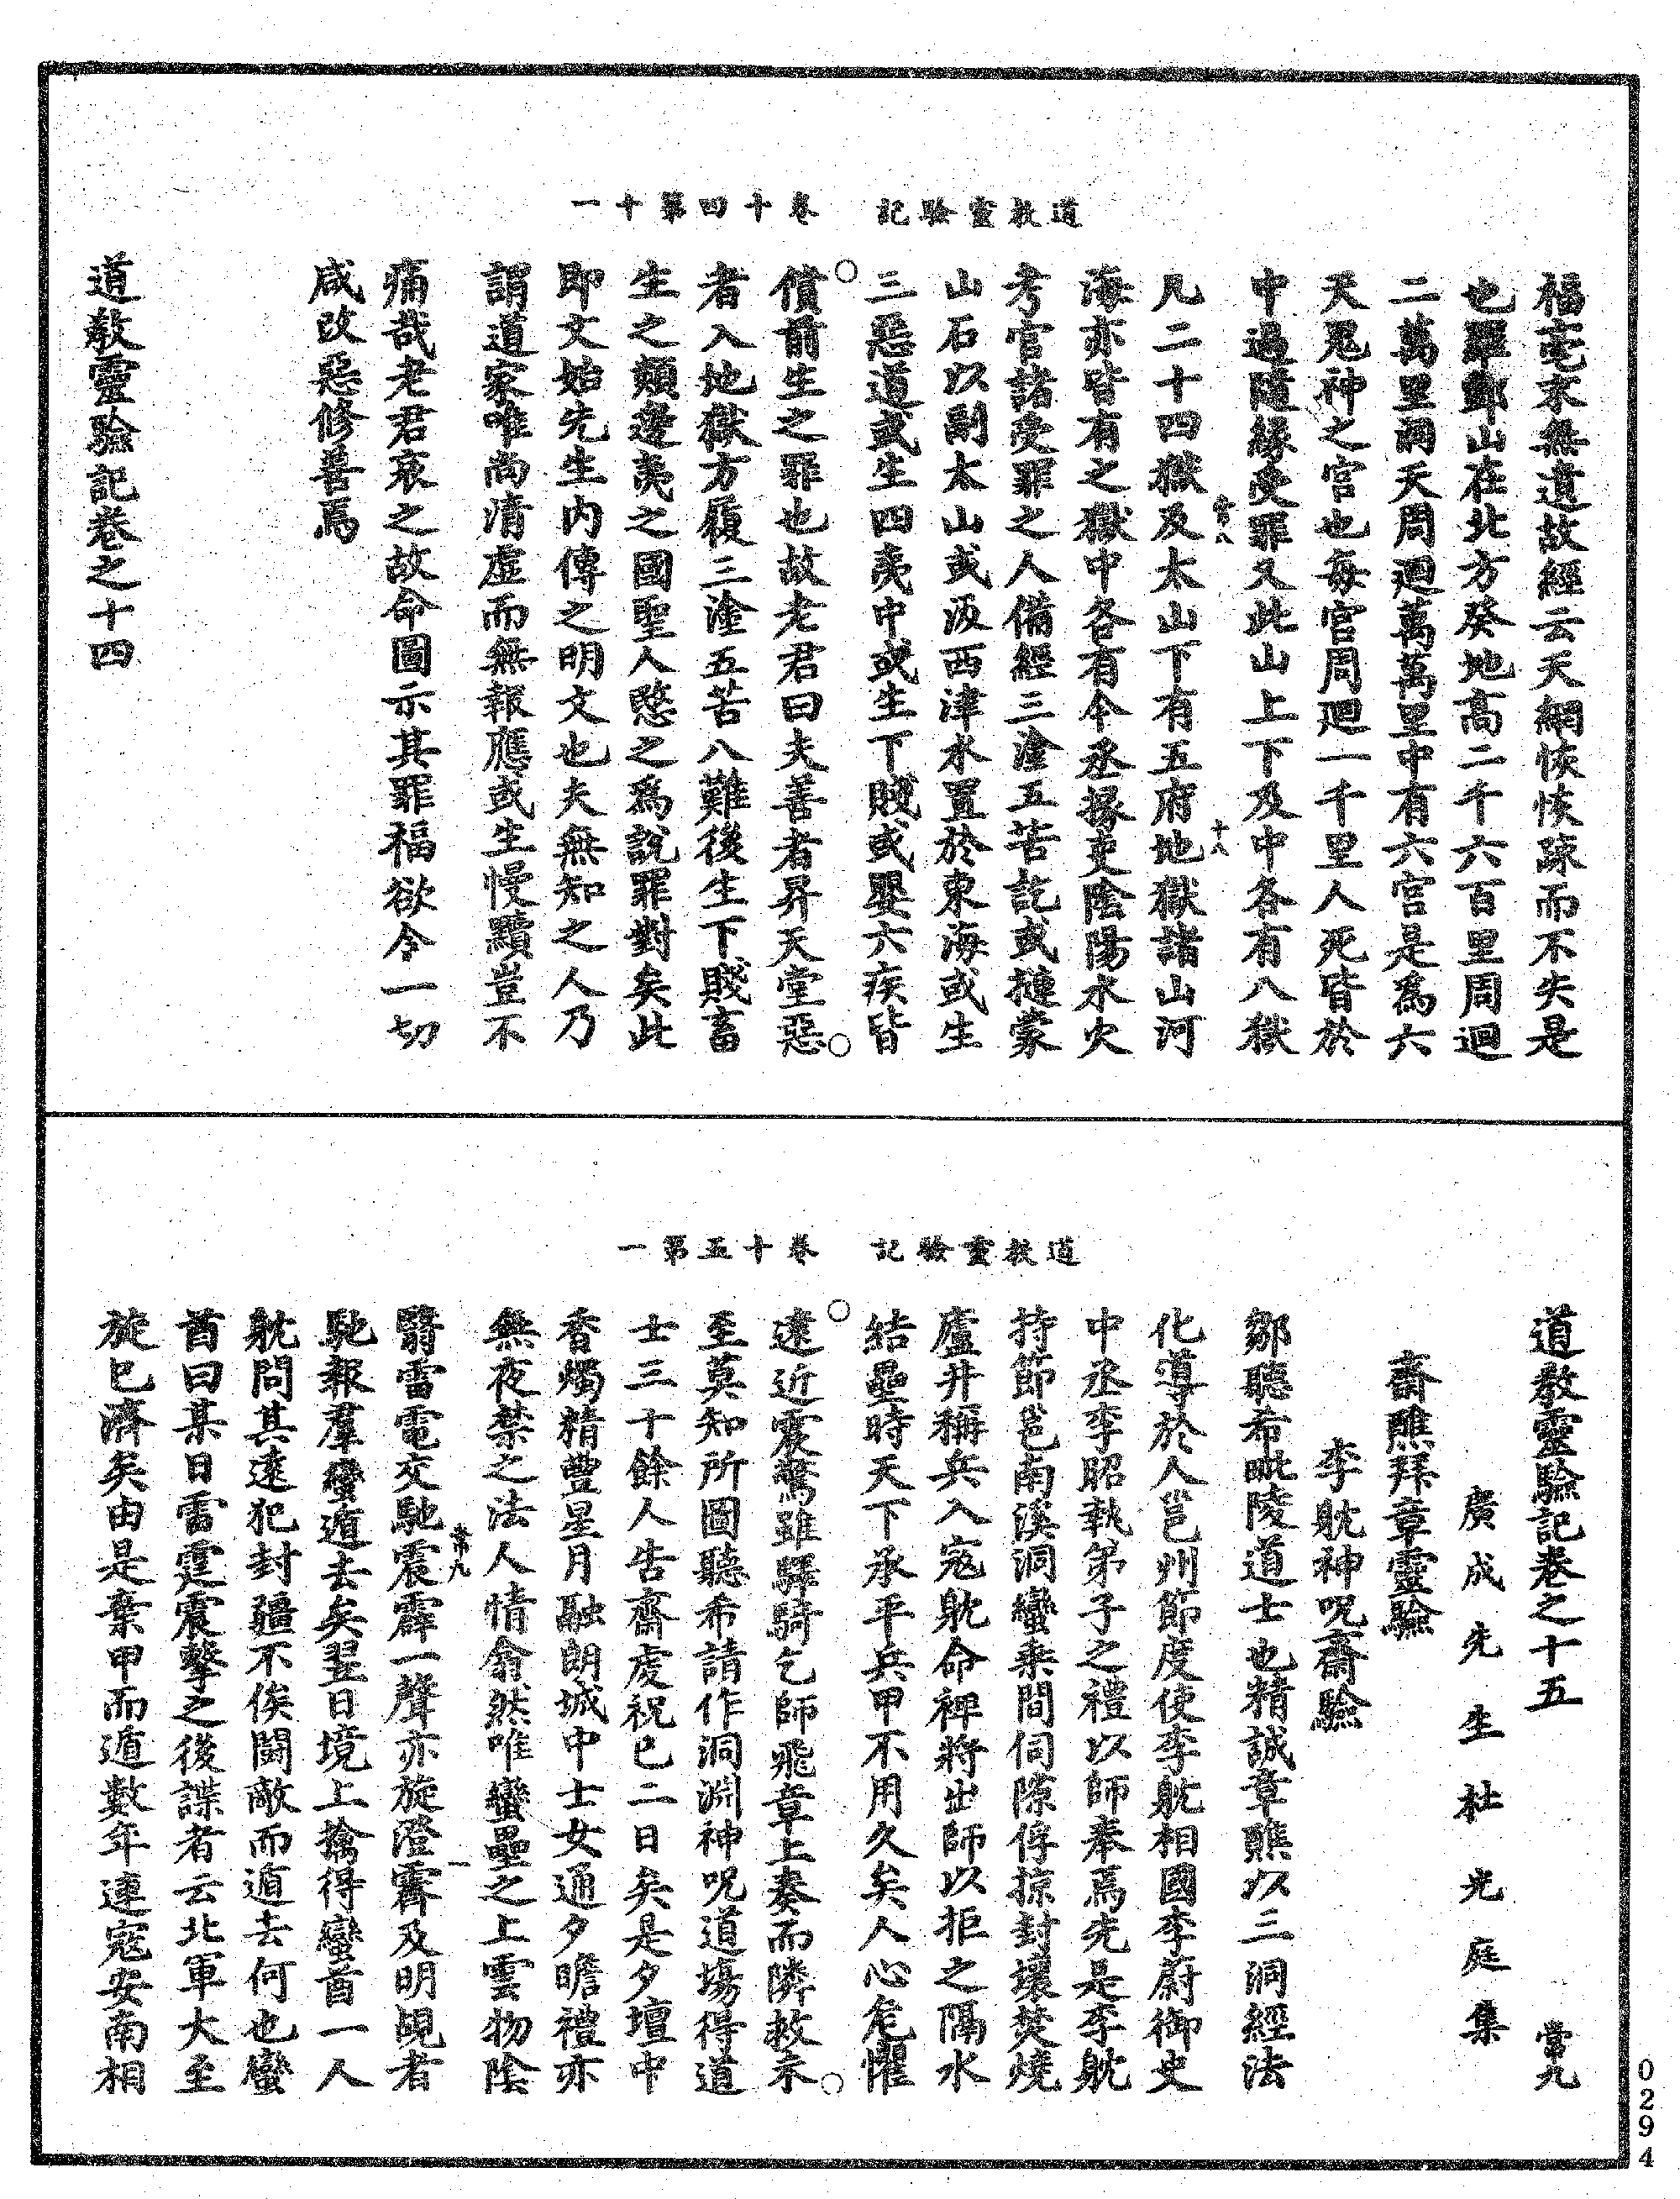 道教靈驗記　卷十四第十一
福毫末無遺故經云天網恢恢疎而不失是
也羅酆山在北方癸地高二千六百里周迴
二萬里洞天周迴萬萬里中有六宮是為六
天鬼神之宮也每宮周迴一千里人死皆於
中過隨緣受罪又此山上下及中各有八獄
常八　十八
凡二十四獄及太山下有五府地獄諸山河
海亦皆有之獄中各有令丞掾吏陰陽水火
考官諸受罪之人備經三塗五苦訖或摙蒙
山石以副太山或汲西津水置於東海或生
三惡道或生四夷中或生下賤或嬰六疾皆
償前生之罪也故老君曰夫善者昇天堂惡
者入地獄方履三塗五苦八難後生下賤畜
生之類邊夷之國聖人愍之為說罪對矣此
即文始先生內傳之明文也夫無知之人乃
謂道家唯尚清虛而無報應或生慢黷豈不
痛哉老君哀之故命圖示其罪福欲令一切
咸改惡修善焉
道教靈驗記卷之十四
道教靈驗記　卷十五第一
道教靈驗記卷之十五　常九
廣成先生杜光庭集
齋醮拜章靈驗
李躭神呪齋驗
鄒聽希毗陵道士也精誠章醮以三洞經法
化導於人邕州節度使李躭相國李蔚御史
中丞李昭執弟子之禮以師奉焉先是李躭
持節邕南溪洞蠻乘間伺隙俘掠封壤焚燒
廬井稱兵入寇躭命裨將出師以拒之隔水
結壘時天下承平兵甲不用久矣人心危懼
遠近震驚雖驛騎乞師飛章上奏而隣救未
至莫知所圖聽希請作洞淵神呪道場得道
士三十餘人告齋虔祝已二日矣是夕壇中
香燭精豐星月融朗城中士女通夕瞻禮亦
無夜禁之法人情翕然唯蠻壘之上雲物陰
常九　一
翳雷電交馳震霹一聲亦旋澄霽及明覘者
馳報羣蠻遁去矣翌日境上擒得蠻首一人
躭問其遠犯封疆不俟鬬敵而遁去何也蠻
首曰某日雷霆震擊之後諜者云北軍大至
旋已濟矣由是棄甲而遁數年連寇安南相
0294